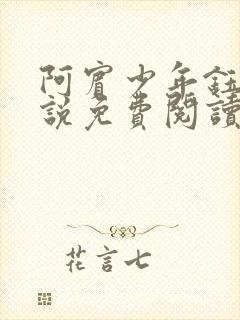 阿賓少年鈺
說免費閱讀
花言七